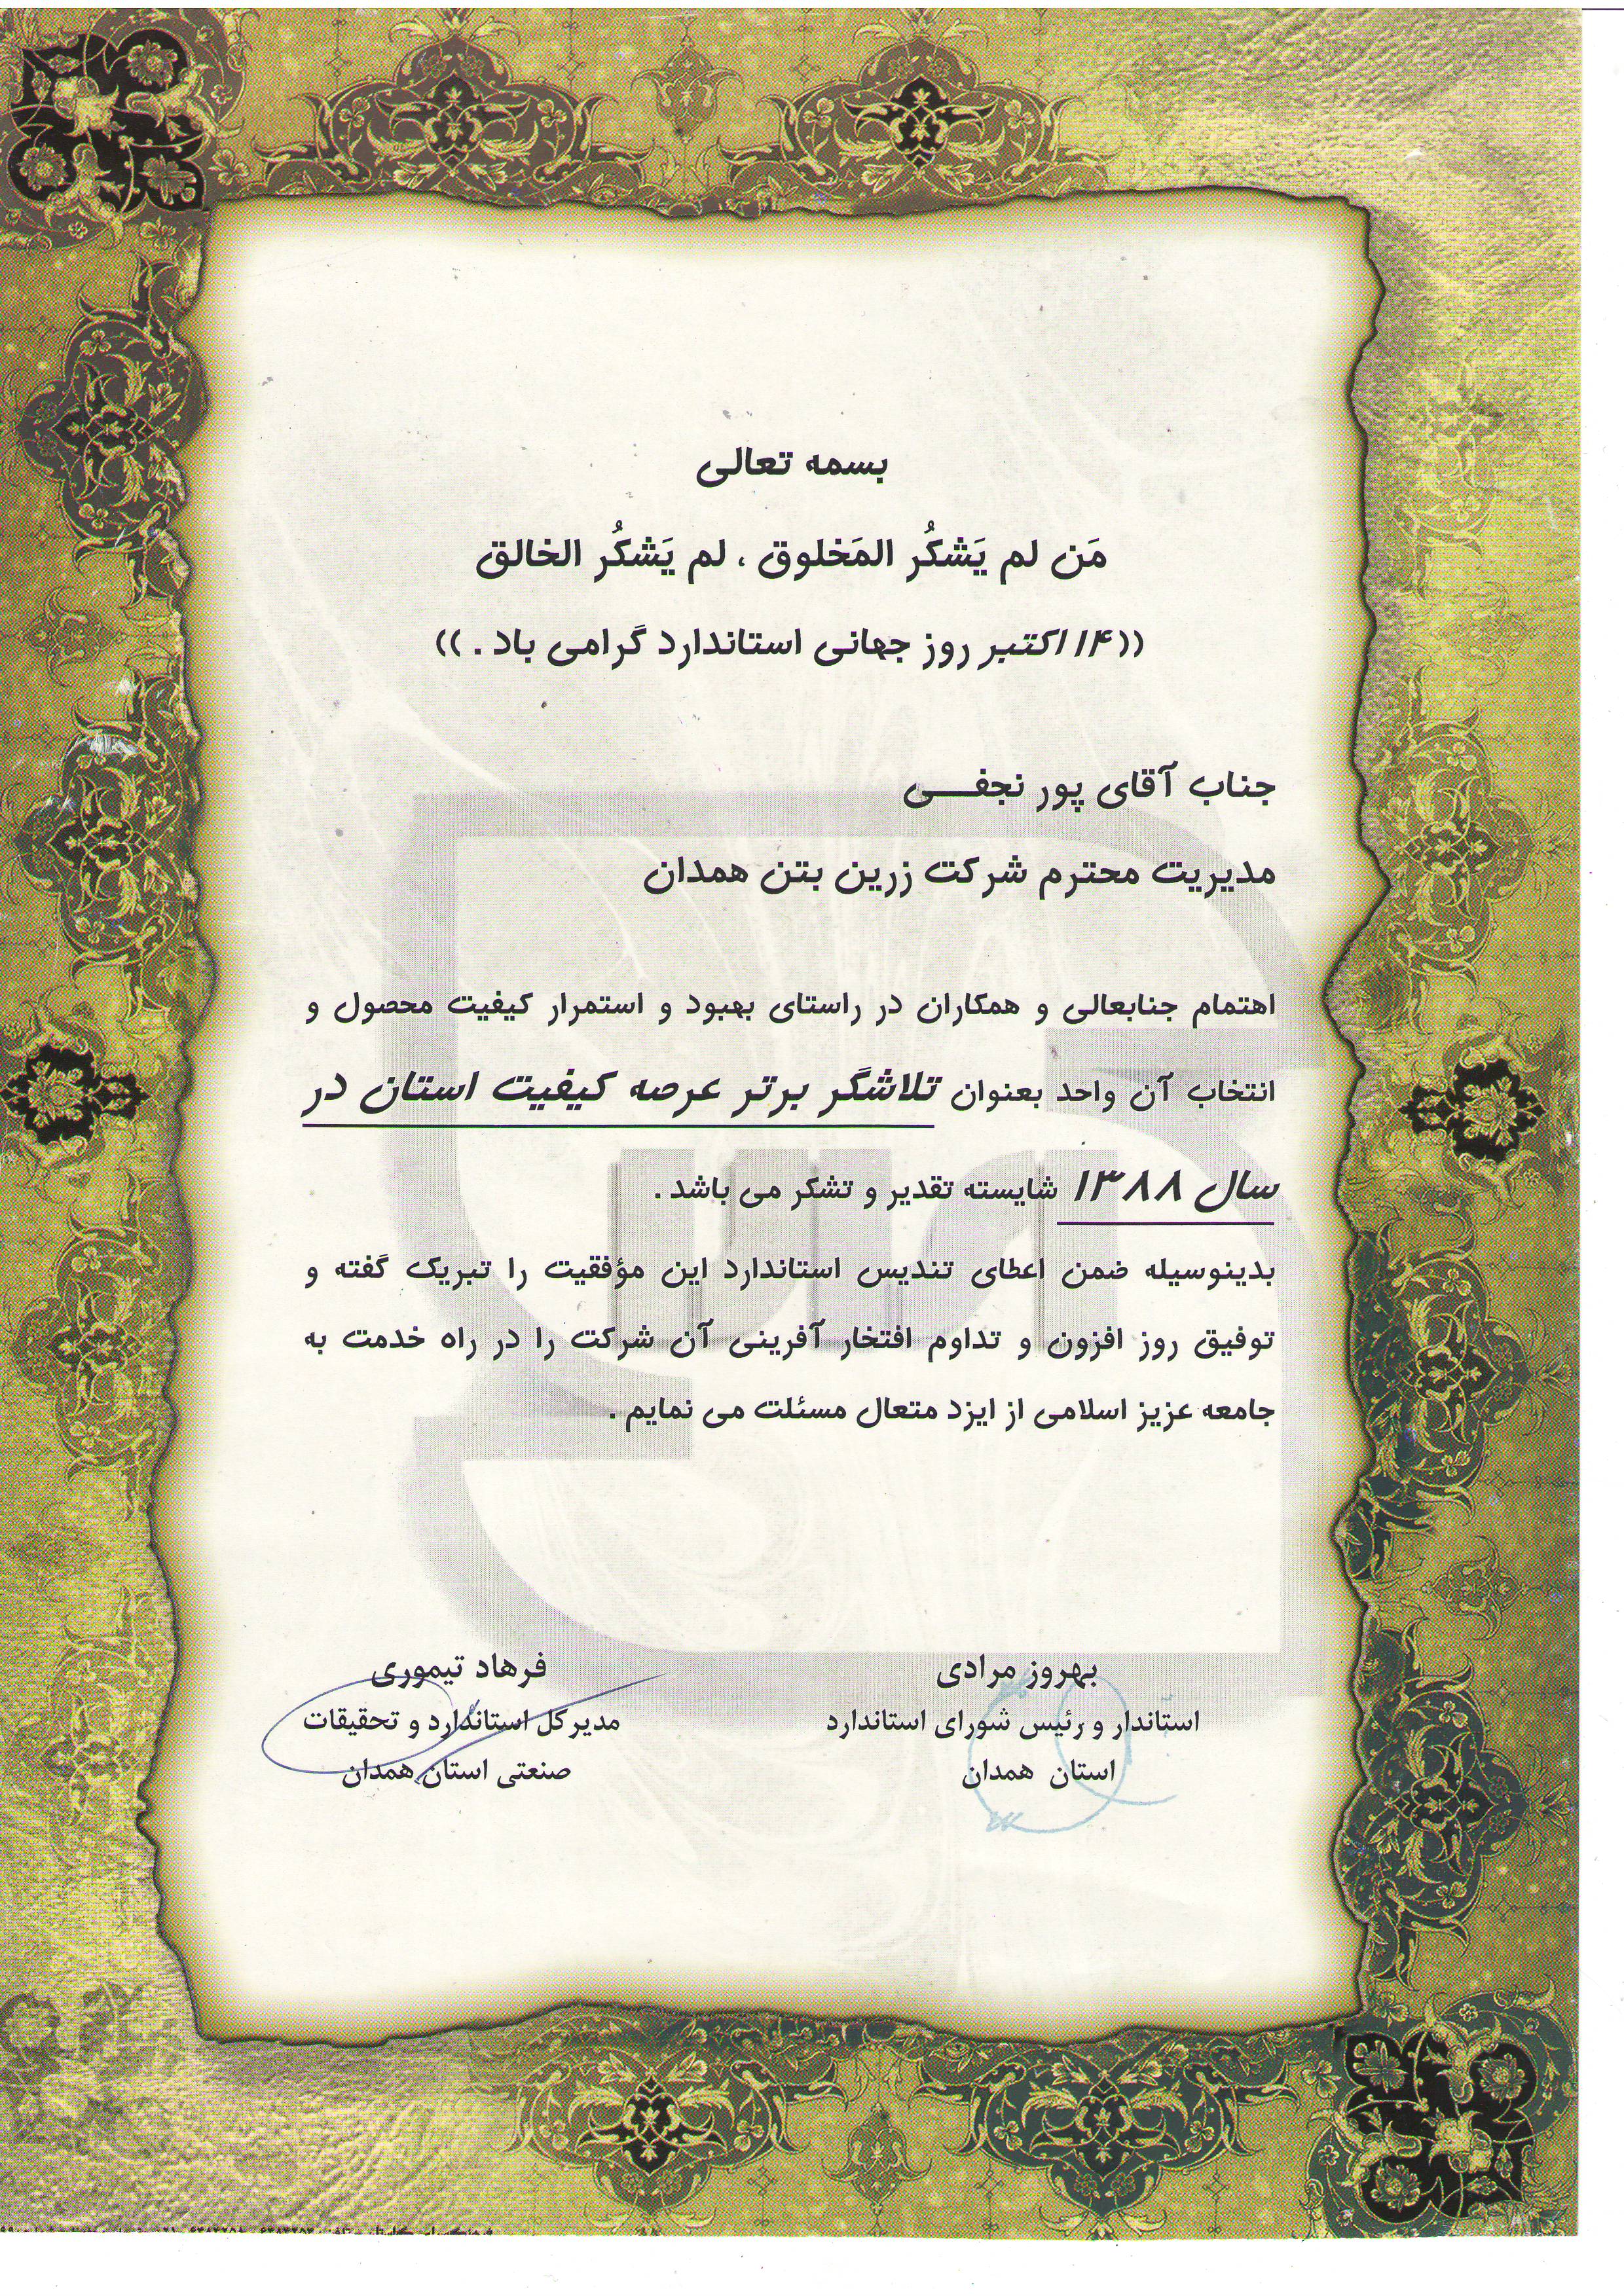 بسمه تعالی
مَن لم یَشکُر المَخلوق ، لم یَشکُر الخالق
((۱۴ اکتبر روز جهانی استاندارد گرامی باد . ))
جناب آقای پور نجفــــی
مدیریت محترم شرکت زرین بتن همدان
اهتمام جنابعالی و همکاران در راستای بهبود و استمرار کیفیت محصول و
انتخاب آن واحد بعنوان تلاشگر برتر عرصه کیفیت استان در
سال ۱۳۸۸ شایسته تقدیر و تشکر می باشد .
بدینوسیله ضمن اعطای تندیس استاندارد این مؤفقیت را تبریک گفته و
توفیق روز افزون و تداوم افتخار آفرینی آن شرکت را در راه خدمت به
جامعه عزیز اسلامی از ایزد متعال مسئلت می نمایم .
بهروز مرادی
استاندار و رئیس شورای استاندارد
استان همدان
فرهاد تیموری
مدیرکل استاندارد و تحقیقات
صنعتی استان همدان